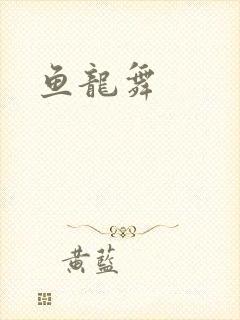 鱼龍舞
黄藍